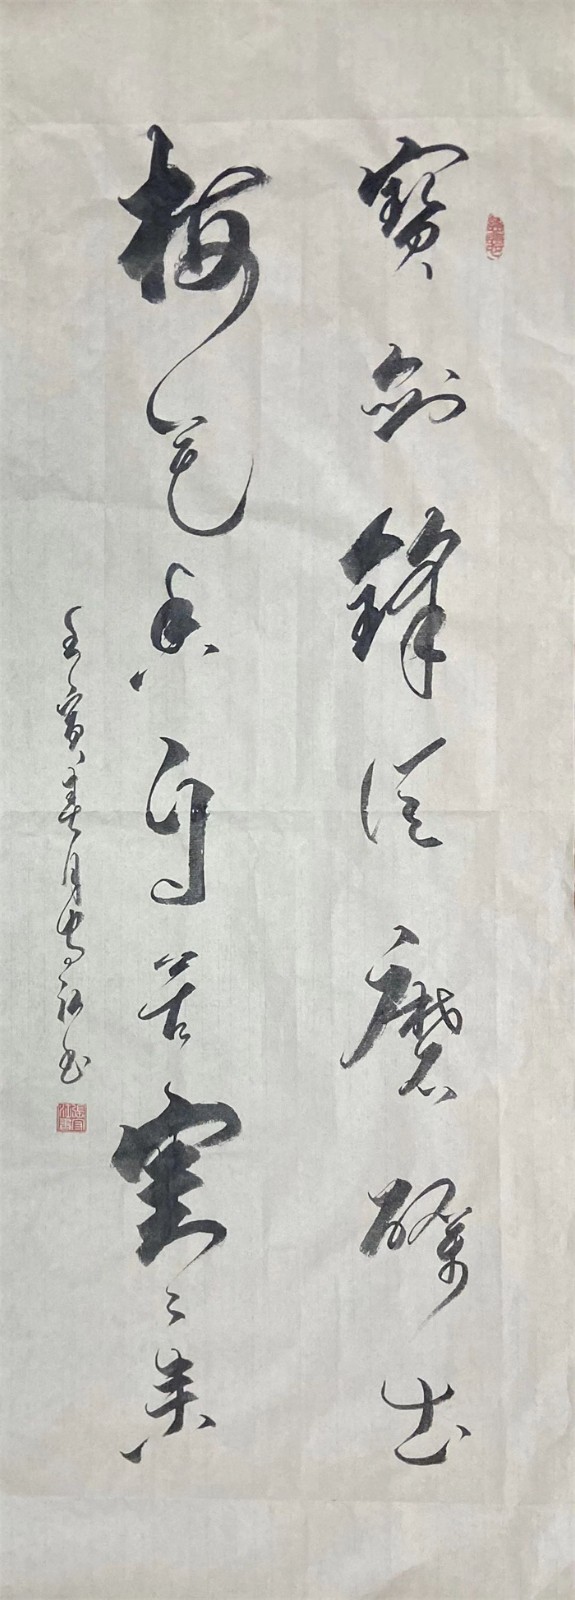 寶劍鋒從磨礪出
梅花香自苦寒来
壬寅春月书